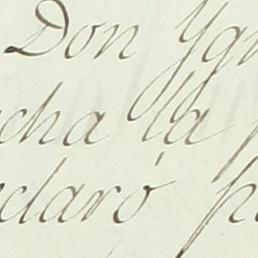 Don Ygn
cha la p
claró p